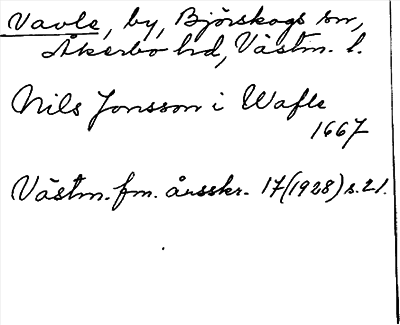 Vavle, by, Björskogs sn,
Åkerbo hrd, Västm. l.
Nils Jonsson i Wafle
1667
Västm. fm. årsskr. 17 (1928) s. 21.